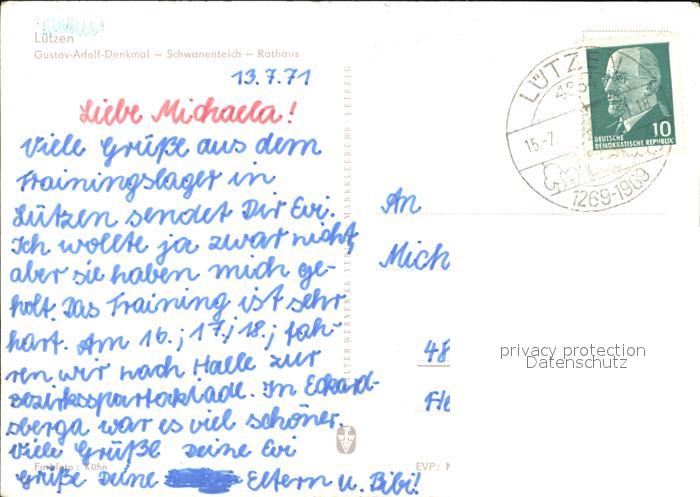 Lützen
Gustav-Adolf-Denkmal — Schwanenteich — Rathaus
13.7.71
Liebe Michaela!
Viele Grüße aus dem
Trainingslager in
Lützen sendet Dir Evi.
Ich wollte ja zwar nicht,
aber sie haben mich ge-
holt. Das Training ist sehr
hart. Am 16.; 17.; 18.; fah-
ren wir nach Halle zur
Bezirksspartakiade. In Eckard-
sberga war es viel schöner.
Viele Grüße Deine Evi
Grüße Deine Eltern u. Bibi!
Farbfoto: Kühn
MARKKLEEBERG - LEIPZIG
LÜTZEN
15.-7.
1269-1969
DEUTSCHE
DEMOKRATISCHE REPUBLIK
10
An
Mich
48
privacy protection
Datenschutz
EVP: